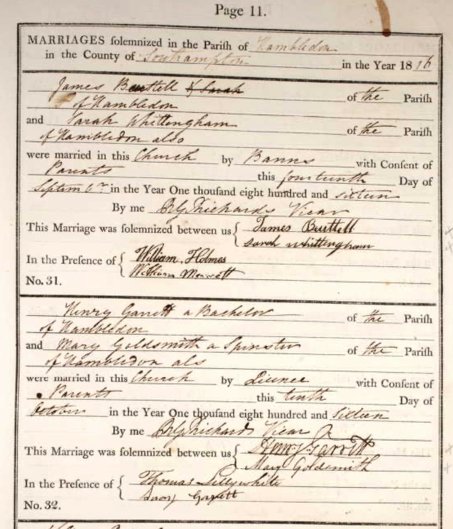 Page 11.
MARRIAGES solemnized in the Parish of Hambledon
in the County of Southampton in the Year 1816
James Burtell & Sarah of the Parish
of Hambledon
and Sarah Whittingham of the Parish
of Hambledon also
were married in this Church by Banns with Consent of
Parents this fourteenth Day of
Septem in the Year One thousand eight hundred and sixteen
By me Richards Vicar
This Marriage was solemnized between us { James Burttell
Sarah Whittingham
In the Presence of { William Holmes
William
No. 31.
Henry Garrett a Bachelor of the Parish
of Hambledon
and Mary Goldsmith a Spinster of the Parish
of Hambledon als
were married in this Church by Licence with Consent of
Parents this tenth Day of
October in the Year One thousand eight hundred and Sixteen
By me Richards Vicar
This Marriage was solemnized between us { Henry Garrett
Mary Goldsmith
In the Presence of { Thomas Lillywhite
Garrett
No. 32.